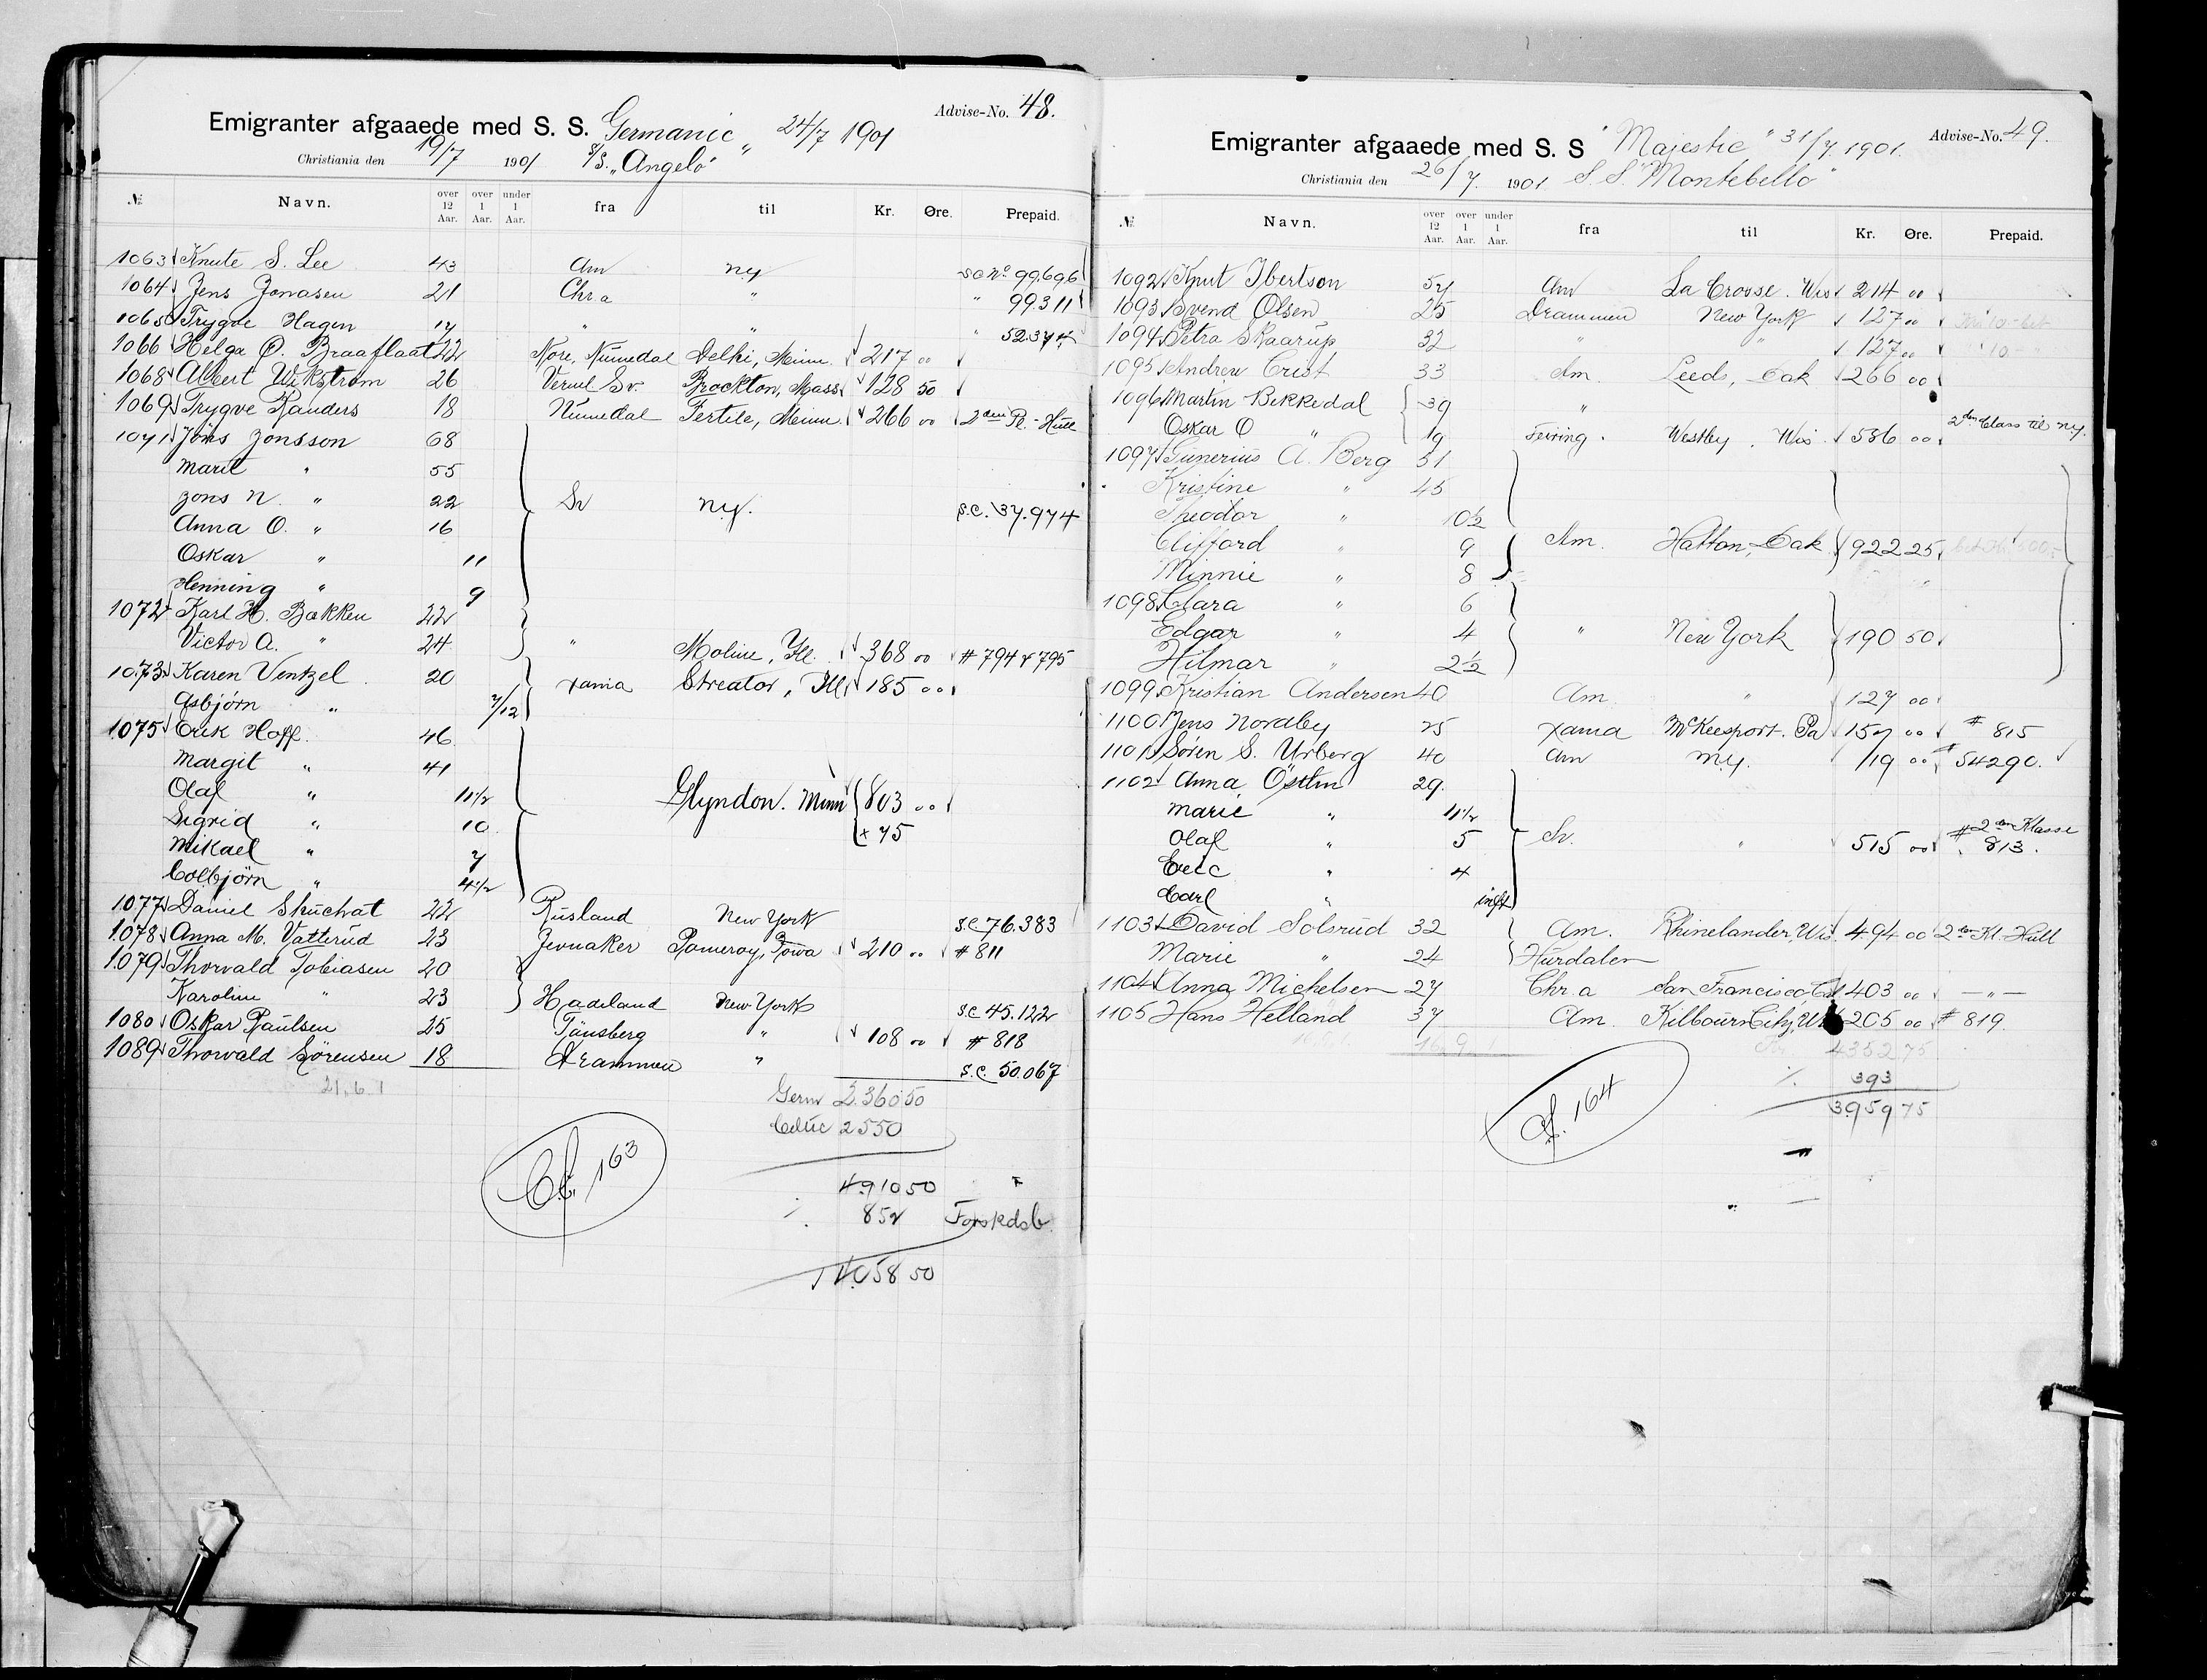 Emigranter afgaaede med S. S. Germanic 24/7 1901 Advise-No. 48.
Christiania den 19/7 1901 S/S. „Angelo"
№ Navn. over 12 Aar. over 1 Aar. under 1 Aar. fra til Kr. Øre. Prepaid.
1063 Knute S. Lee 43 Am ny sc No 99.696
1064 Jens Jonasen 21 Chr a " " 99311
1065 Trygve Hagen 17 " " " 52374
1066 Helga O. Braaflaat 22 Nore, Numedal Delhi, Minn. 217 00
1068 Albert Wikström 26 Verml Sv. Brockton, Mass 128 50
1069 Trygve Randers 18 Numedal Fertile, Minn. 266 00 2den Pl. - Hull
1071 Jöns Jonsson 68
Marit " 55
Jons N. " 22 Sv ny. s.c. 37.974
Anna O. " 16
Oskar " 11
Henning " 9
1072 Karl H. Bakken 22
Victor A. " 24 " Moline, Ill. 368 00 # 794 & 795
1073 Karen Ventzel 20 Xania Streator, Ill 185 00
Asbjörn " 7/12
1075 Erik Hoff 46
Margit " 41
Olaf " 11 1/2 Glyndon. Minn 803 00
Sigrid " 10 + 75
Mikael " 7
Colbjörn " 4 1/2
1077 Daniel Skuchat 22 Rusland New York s.c 76.383
1078 Anna M. Vatterud 23 Jevnaker Pomeroy, Iowa 210 00 # 811
1079 Thorvald Tobiasen 20
Karoline " 23 Hadeland New York s.c 45.122
1080 Oskar Paulsen 25 Tönsberg " 108 00 # 818
1089 Thorvald Sörensen 18 Drammen " s.c. 50.067
21. 6. 1
Germ 2.360 50
Celtic 2550
4910 50
% 852 Forskdsb.
4058 50
Cf. 163
Emigranter afgaaede med S. S "Majestic" 31/7. 1901. Advise-No. 49.
Christiania den 26/7. 1901. S. S. "Montebello"
№ Navn. over 12 Aar. over 1 Aar. under 1 Aar. fra til Kr. Øre. Prepaid.
1092 Knut Ibertson 57 Am La Crosse. Wis 214 00
1093 Svend Olsen 25 Drammen New York 127 00
1094 Petra Skaarup 32 " " 127 00
1095 Andrew Crist 33 Am. Leeds, Dak 266 00
1096 Martin Bekkedal 39 "
Oskar O " 19 Feiring. Westby. Wis. 586 00 2den Class til ny.
1097 Gunerius A. Berg 51
Kristine " 45
Theodor " 10 1/2
Clifford " 9 Am. Hatton, Dak 922 25
Minnie " 8
1098 Clara " 6
Edgar " 4 " New York 190 50
Hilmar " 2 1/2
1099 Kristian Andersen 40 Am. " 127 00
1100 Jens Nordby 25 Xania McKeesport. Pa 157 00 # 815
1101 Sören S. Urberg 40 Am ny. 119 00 # 54290.
1102 Anna Östlin 29.
Marie " 11 1/2
Olaf " 5 Sv. " 515 00 # 2den Klasse 813.
Eric " 4
Carl " inft
1103 David Solsrud 32 Am. Rhinelander, Wis. 494 00 2den Kl. Hull
Marie " 24 Hurdalen
1104 Anna Michelsen 27 Chr. a San Francisco, Cal 403 00 — " —
1105 Hans Helland 37 Am. Kilbourn City, Wis 205 00 # 819.
4352 75
% 393
3959 75
Cf. 164